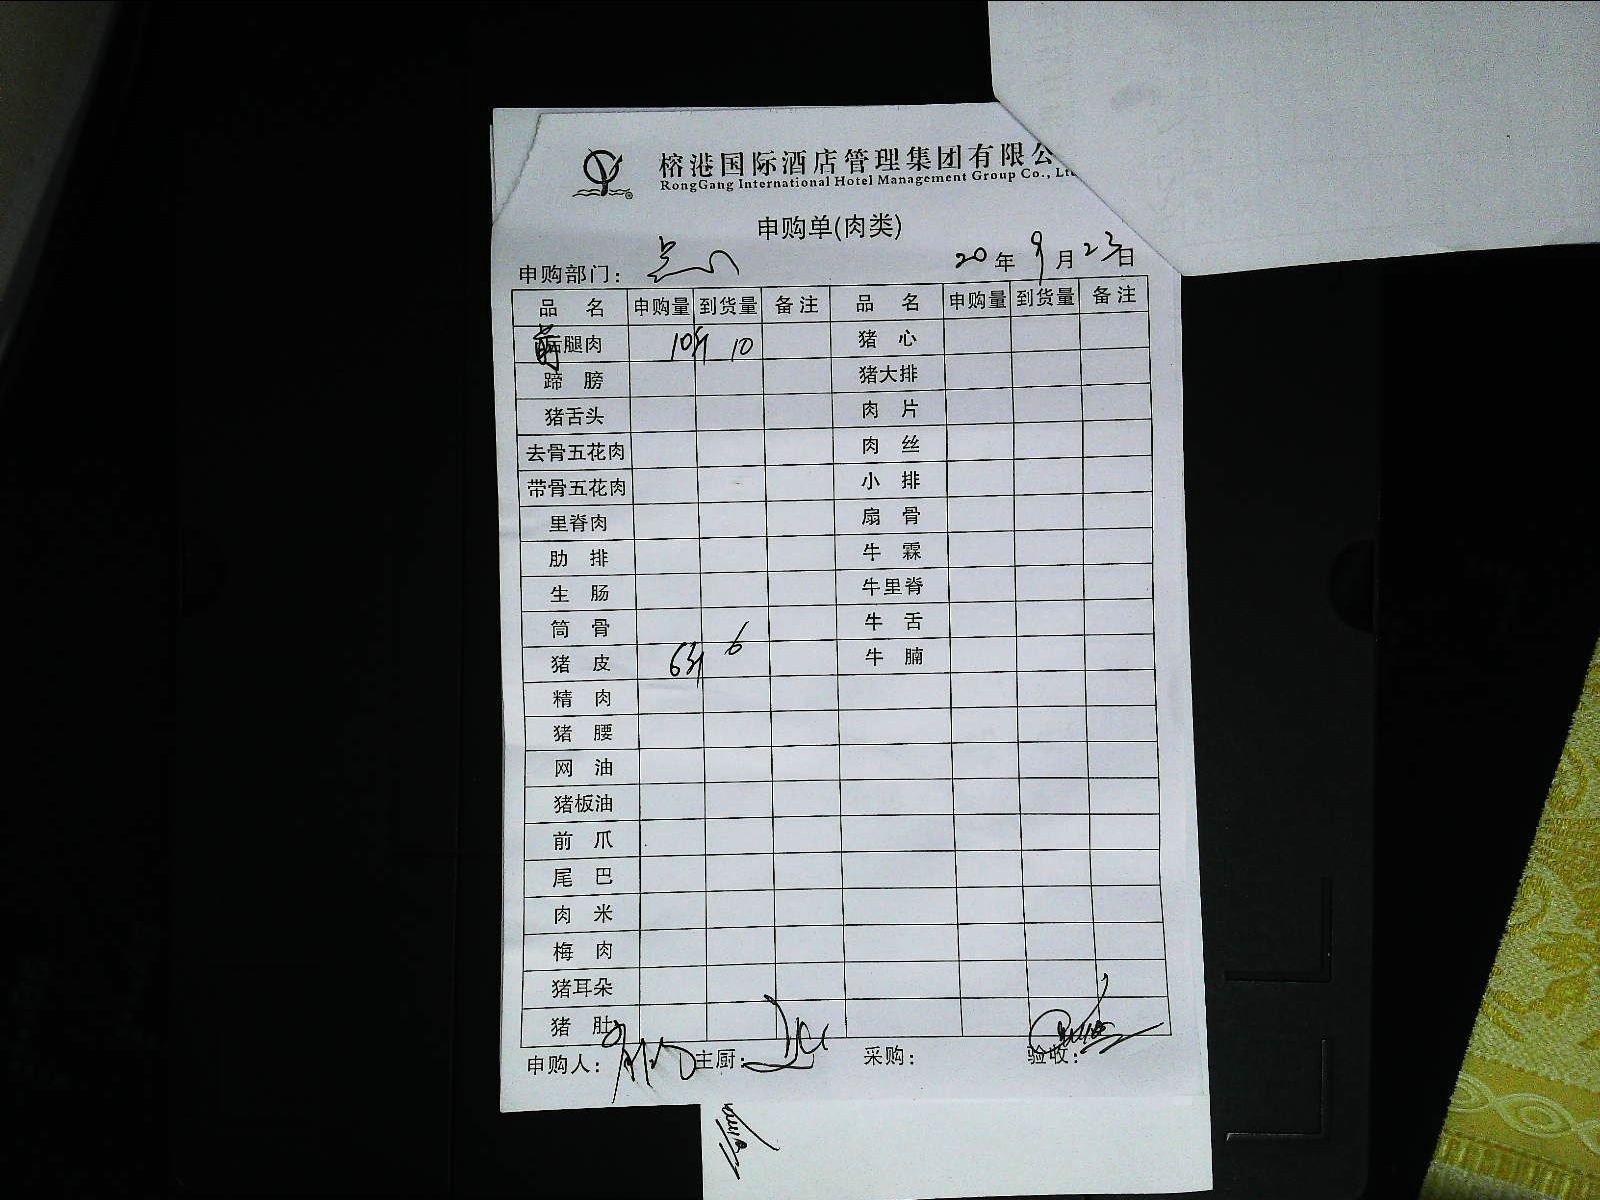 榕港国际酒店管理集团有限公
RongGang International Hotel Management Group Co., Lt
申购单(肉类)
申购部门: 点心 20年9月23日
品名 申购量 到货量 备注 品名 申购量 到货量 备注
前腿肉 10斤 10 猪心
蹄膀 猪大排
猪舌头 肉片
去骨五花肉 肉丝
带骨五花肉 小排
里脊肉 扇骨
肋排 牛霖
生肠 牛里脊
筒骨 牛舌
猪皮 6斤 6 牛腩
精肉
猪腰
网油
猪板油
前爪
尾巴
肉米
梅肉
猪耳朵
猪肚
申购人: 主厨: 采购: 验收: